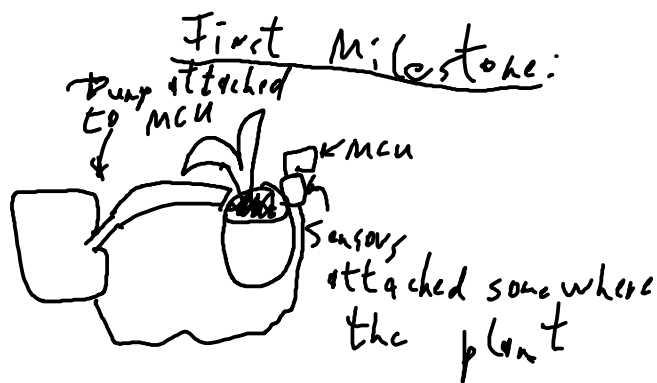 First Milestone:
Pump attached
to MCU
MCU
Sensors
attached somewhere
the plant